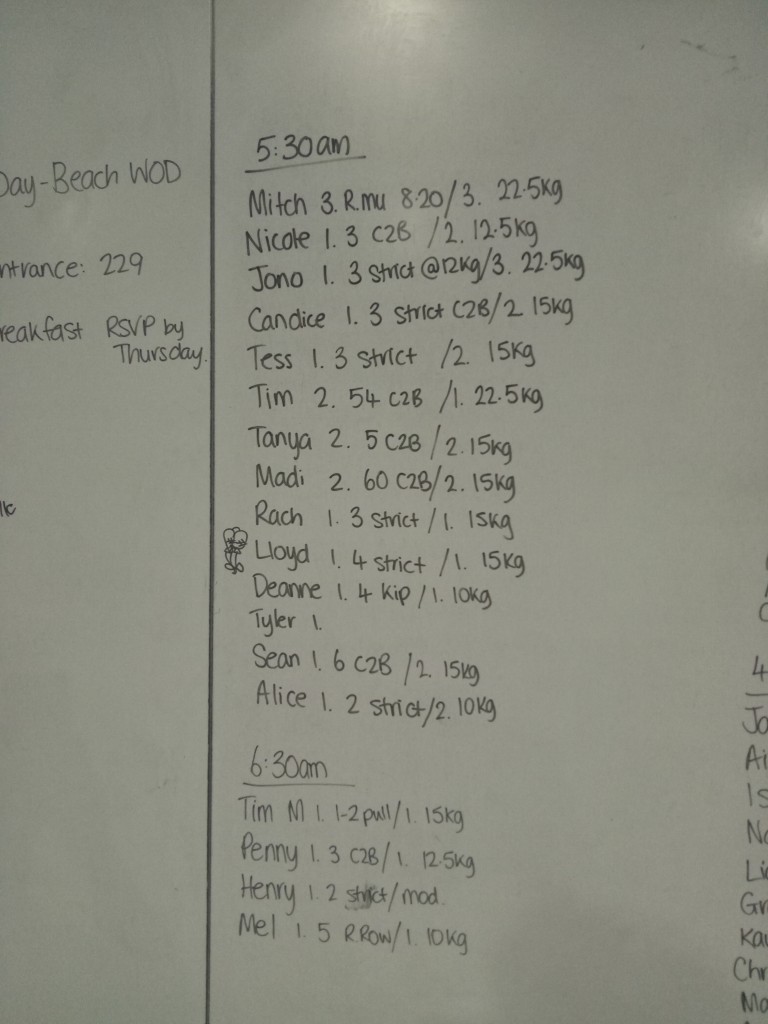 Day-Beach WOD
ntrance: 229
reakfast RSVP by
Thursday.
5:30am
Mitch 3. R.mu 8.20/3. 22.5kg
Nicole 1. 3 C2B /2. 12.5kg
Jono 1. 3 strict @12kg/3. 22.5kg
Candice 1. 3 strict C2B/2 15kg
Tess 1. 3 strict /2. 15kg
Tim 2. 54 C2B /1. 22.5kg
Tanya 2. 5 C2B /2. 15kg
Madi 2. 60 C2B/2. 15kg
Rach 1. 3 strict /1. 15kg
Lloyd 1. 4 strict /1. 15kg
Deanne 1. 4 Kip /1. 10kg
Tyler 1.
Sean 1. 6 C2B /2. 15kg
Alice 1. 2 strict/2. 10kg
6:30am
Tim M 1. 1-2 pull/1. 15kg
Penny 1. 3 C2B/1. 12.5kg
Henry 1. 2 strict/mod.
Mel 1. 5 R.Row/1. 10kg
4
Ja
Ai
Is
Na
Li
Gr
Kau
Chr
Ma